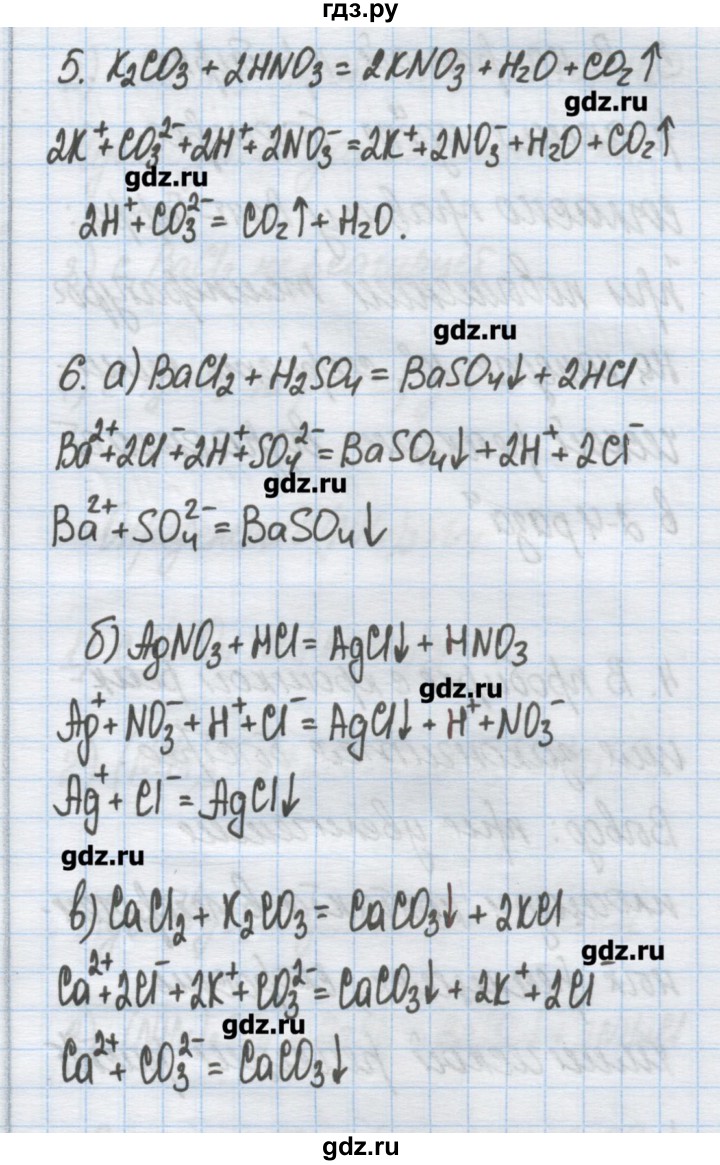 гдз.ру
5. K₂CO₃ + 2HNO₃ = 2KNO₃ + H₂O + CO₂↑
gdz.ru
2K⁺ + CO₃²⁻ + 2H⁺ + 2NO₃⁻ = 2K⁺ + 2NO₃⁻ + H₂O + CO₂↑
gdz.ru
2H⁺ + CO₃²⁻ = CO₂↑ + H₂O.
gdz.ru
6. а) BaCl₂ + H₂SO₄ = BaSO₄↓ + 2HCl
Ba²⁺ + 2Cl⁻ + 2H⁺ + SO₄²⁻ = BaSO₄↓ + 2H⁺ + 2Cl⁻
gdz.ru
Ba²⁺ + SO₄²⁻ = BaSO₄↓
б) AgNO₃ + HCl = AgCl↓ + HNO₃
gdz.ru
Ag⁺ + NO₃⁻ + H⁺ + Cl⁻ = AgCl↓ + H⁺ + NO₃⁻
Ag⁺ + Cl⁻ = AgCl↓
gdz.ru
в) CaCl₂ + K₂CO₃ = CaCO₃↓ + 2KCl
gdz.ru
Ca²⁺ + 2Cl⁻ + 2K⁺ + CO₃²⁻ = CaCO₃↓ + 2K⁺ + 2Cl⁻
gdz.ru
Ca²⁺ + CO₃²⁻ = CaCO₃↓
gdz.ru